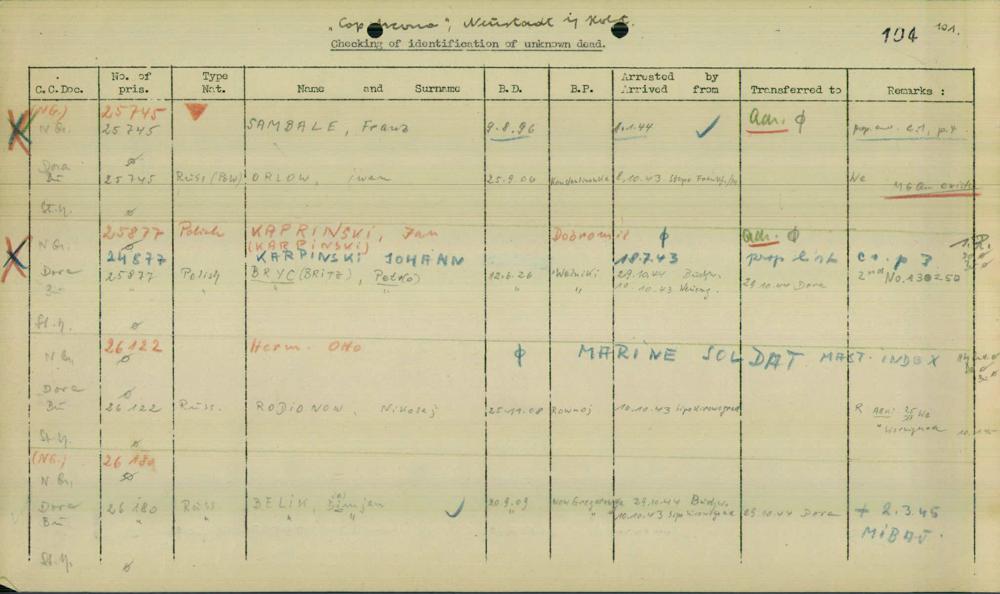 "Cap Arcona", Neustadt i/ Holst.
104 101.
Checking of identification of unknown dead.
C.C.Doc. No. of pris. Type Nat. Name and Surname B.D. B.P. Arrested by Arrived from Transferred to Remarks :
(NG.) 25745
N Gr. 25745 SAMBALE, Franz 9.8.96 8.1.44 Adr. ϕ
Dora ϕ
Bu 25745 Russ (POW) ORLOW, iwan 25.9.06 8.10.43 Stapo
St.H. ϕ
25877 Polish KAPRINSKI, Jan Dobromil ϕ Adr. ϕ
N Gr. ϕ (KARPINSKI)
24877 KARPINSKI JOHANN 18.7.43 prop list
Dora 25877 Polish BRYC (BRITZ), Petko) 12.6.26 29.10.44 Buchw. 29.10.44 Dora 2nd No. 130250
Bu " " " " 10.10.43
St.H. ϕ
26122 Herm. Otto
N Gr. ϕ ϕ MARINE SOLDAT MAST. INDEX
Dora ϕ
Bu 26122 Russ. RODIONOW, Nikolaj 25.11.08 Rownoj 10.10.43 R
St.H. ϕ
(NG.) 26180
N Gr. ϕ
Dora 26180 Russ BELIK, 20.9.09 29.10.44 Buchw. 29.10.44 Dora + 2.3.45
Bu " " " " " " 10.10.43 MiBAU.
St.H. ϕ